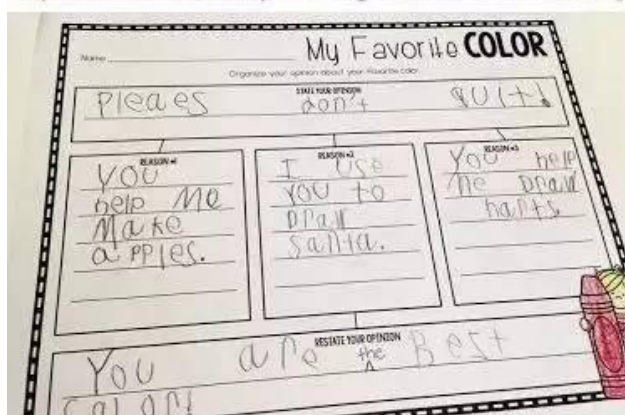 Name
My Favorite COLOR
Organize your opinion about your favorite color
STATE YOUR OPINION
Pleaes don't quit!
REASON #1
You
help Me
Make
apples.
REASON #2
I use
you to
Draw
santa.
REASON #3
You help
me Draw
harts.
RESTATE YOUR OPINION
You are the Best
Color!